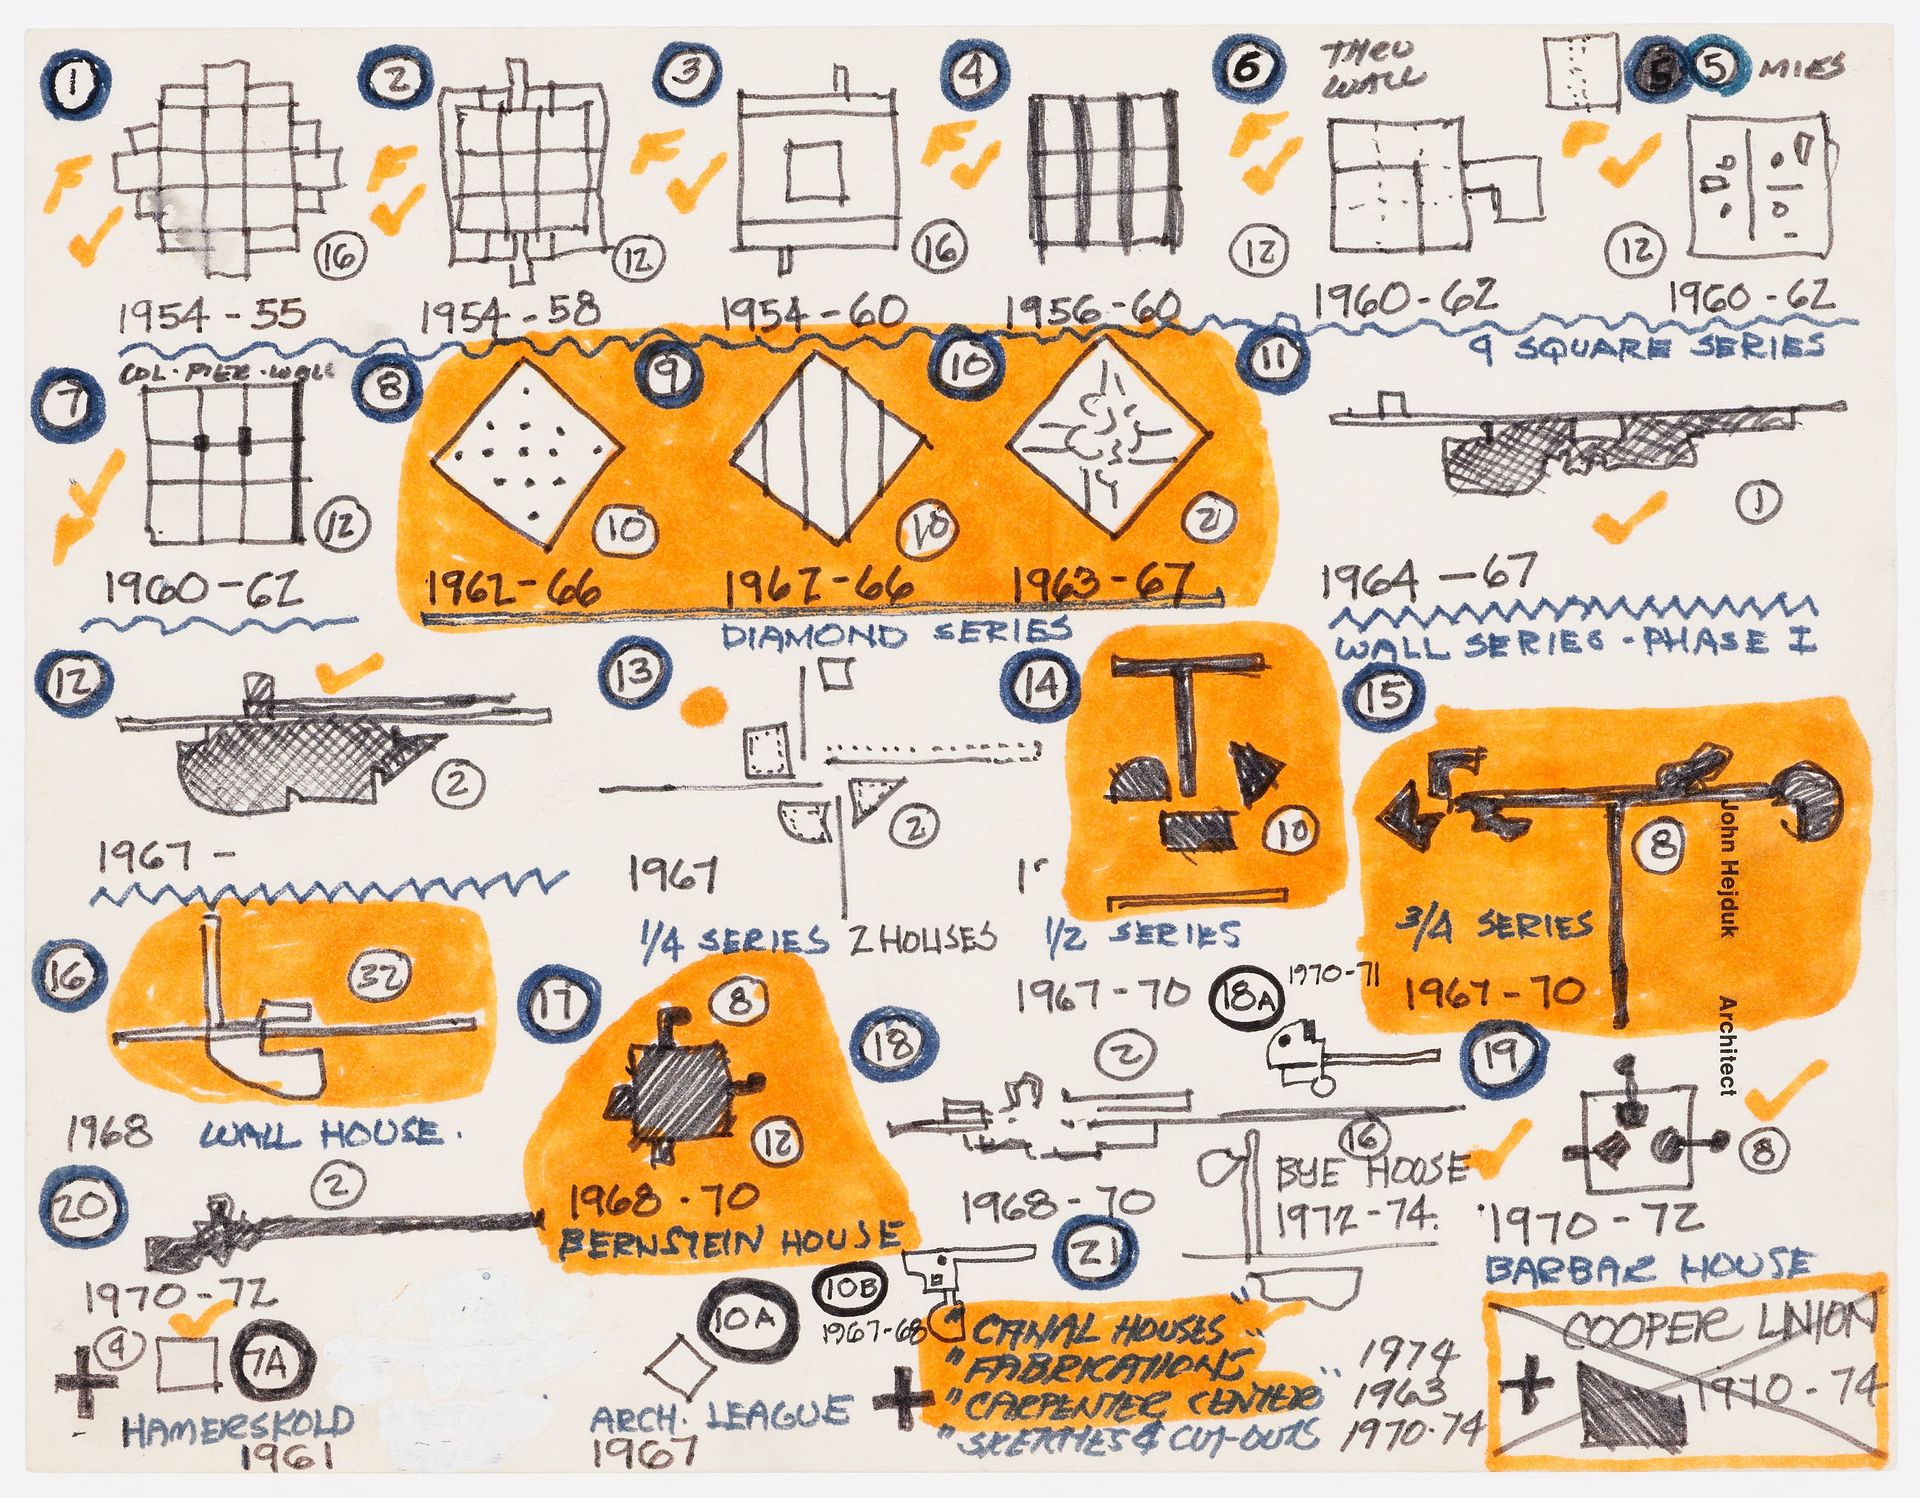 1
2
3
4
6
THRU
WALL
5
5
MIES
F
F
F
F
F
F
16
12
16
12
12
1954-55
1954-58
1954-60
1956-60
1960-62
1960-62
9 SQUARE SERIES
7
COL. PIER. WALL
8
9
10
11
12
10
10
2
1
1960-62
1962-66
1962-66
1963-67
1964-67
DIAMOND SERIES
WALL SERIES - PHASE I
12
13
14
15
2
2
10
8
1967-
1967
1/4 SERIES 2 HOUSES
1/2 SERIES
1967-70
3/4 SERIES
1967-70
John Hejduk Architect
16
32
17
8
12
18
2
18A
1970-71
19
16
8
1968
WALL HOUSE.
1968-70
BERNSTEIN HOUSE
1968-70
BYE HOUSE
1972-74.
1970-72
BARBAR HOUSE
20
2
1970-72
+
4
7A
HAMERSKOLD
1961
10A
ARCH. LEAGUE
1967
10B
1967-68
21
+
"CANAL HOUSES"
"FABRICATIONS
"CARPENTER CENTER"
"SKETCHES & CUT-OUTS
1974
1963
1970-74
COOPER UNION
+
1970-74